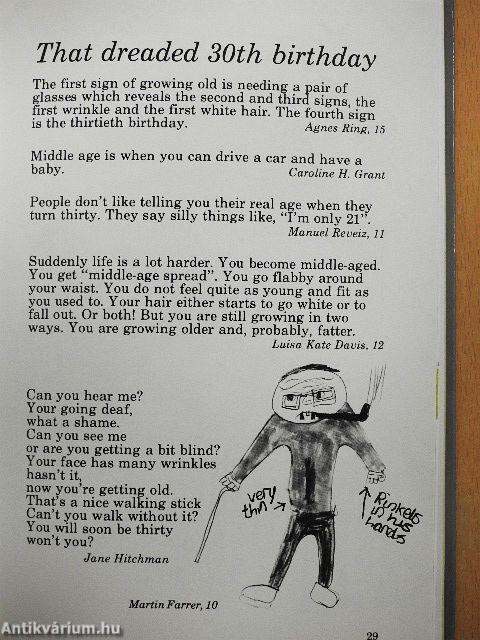 That dreaded 30th birthday
The first sign of growing old is needing a pair of
glasses which reveals the second and third signs, the
first wrinkle and the first white hair. The fourth sign
is the thirtieth birthday.
Agnes Ring, 15
Middle age is when you can drive a car and have a
baby.
Caroline H. Grant
People don't like telling you their real age when they
turn thirty. They say silly things like, "I'm only 21".
Manuel Reveiz, 11
Suddenly life is a lot harder. You become middle-aged.
You get "middle-age spread". You go flabby around
your waist. You do not feel quite as young and fit as
you used to. Your hair either starts to go white or to
fall out. Or both! But you are still growing in two
ways. You are growing older and, probably, fatter.
Luisa Kate Davis, 12
Can you hear me?
Your going deaf,
what a shame.
Can you see me
or are you getting a bit blind?
Your face has many wrinkles
hasn't it,
now you're getting old.
That's a nice walking stick
Can't you walk without it?
You will soon be thirty
won't you?
Jane Hitchman
very
thn
Rinkels
in his
hands
Martin Farrer, 10
29
Antikvárium.hu